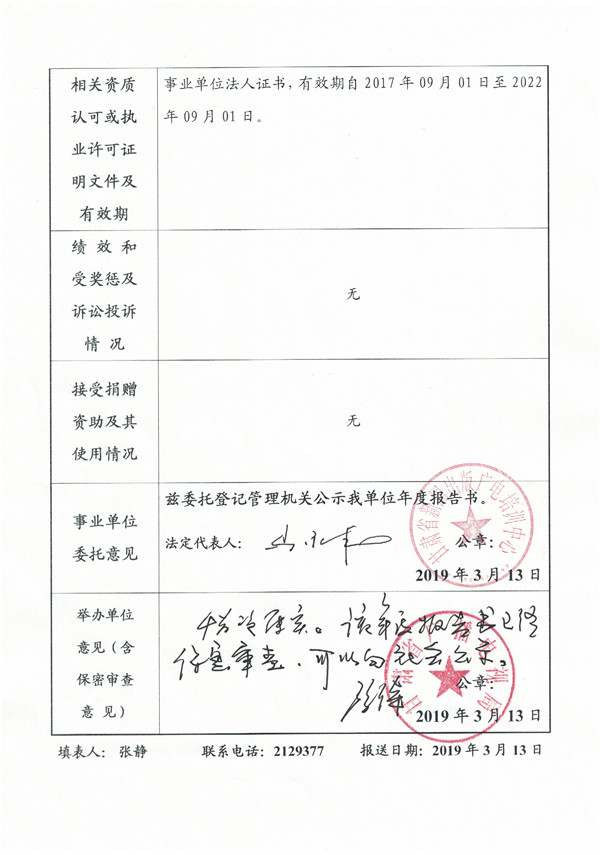 相关资质
认可或执
业许可证
明文件及
有效期
事业单位法人证书，有效期自 2017 年 09 月 01 日至 2022
年 09 月 01 日。
绩 效 和
受奖惩及
诉讼投诉
情 况
无
接受捐赠
资助及其
使用情况
无
事业单位
委托意见
兹委托登记管理机关公示我单位年度报告书。
法定代表人：
公章：
2019 年 3 月 13 日
甘肃省新闻出版广电培训中心
举办单位
意见（含
保密审查
意 见）
情况属实。该年度报告书已经
保密审查，可以向社会公示。
公章：
2019 年 3 月 13 日
甘肃省广播电视局
填表人： 张静 联系电话：2129377 报送日期：2019 年 3 月 13 日